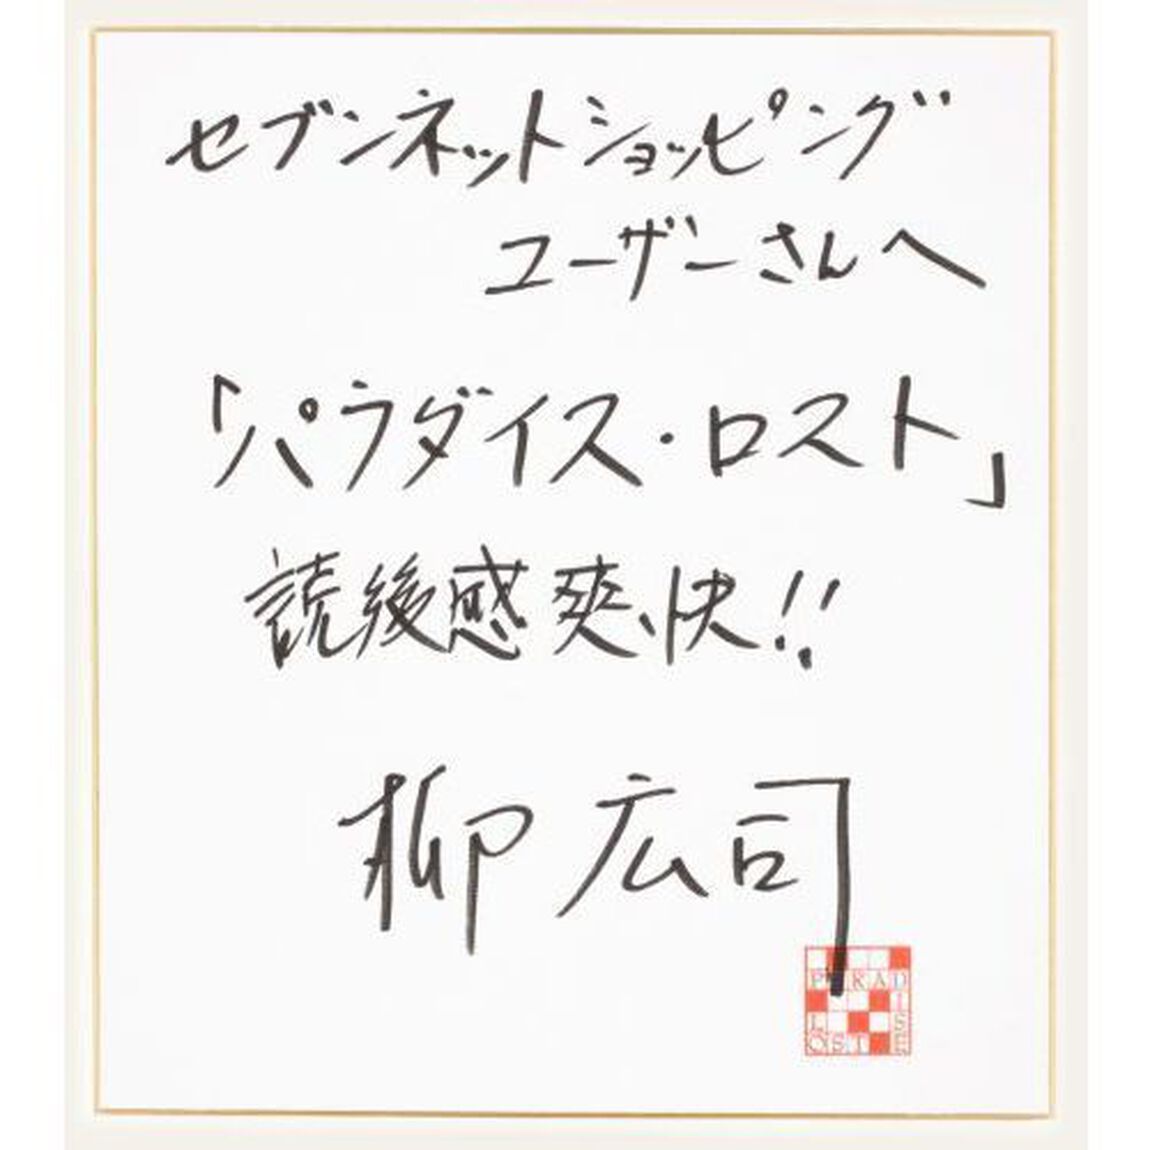 セブンネットショッピング
ユーザーさんへ
「パラダイス・ロスト」
読後感爽快!!
柳広司
PARADISE
LOST